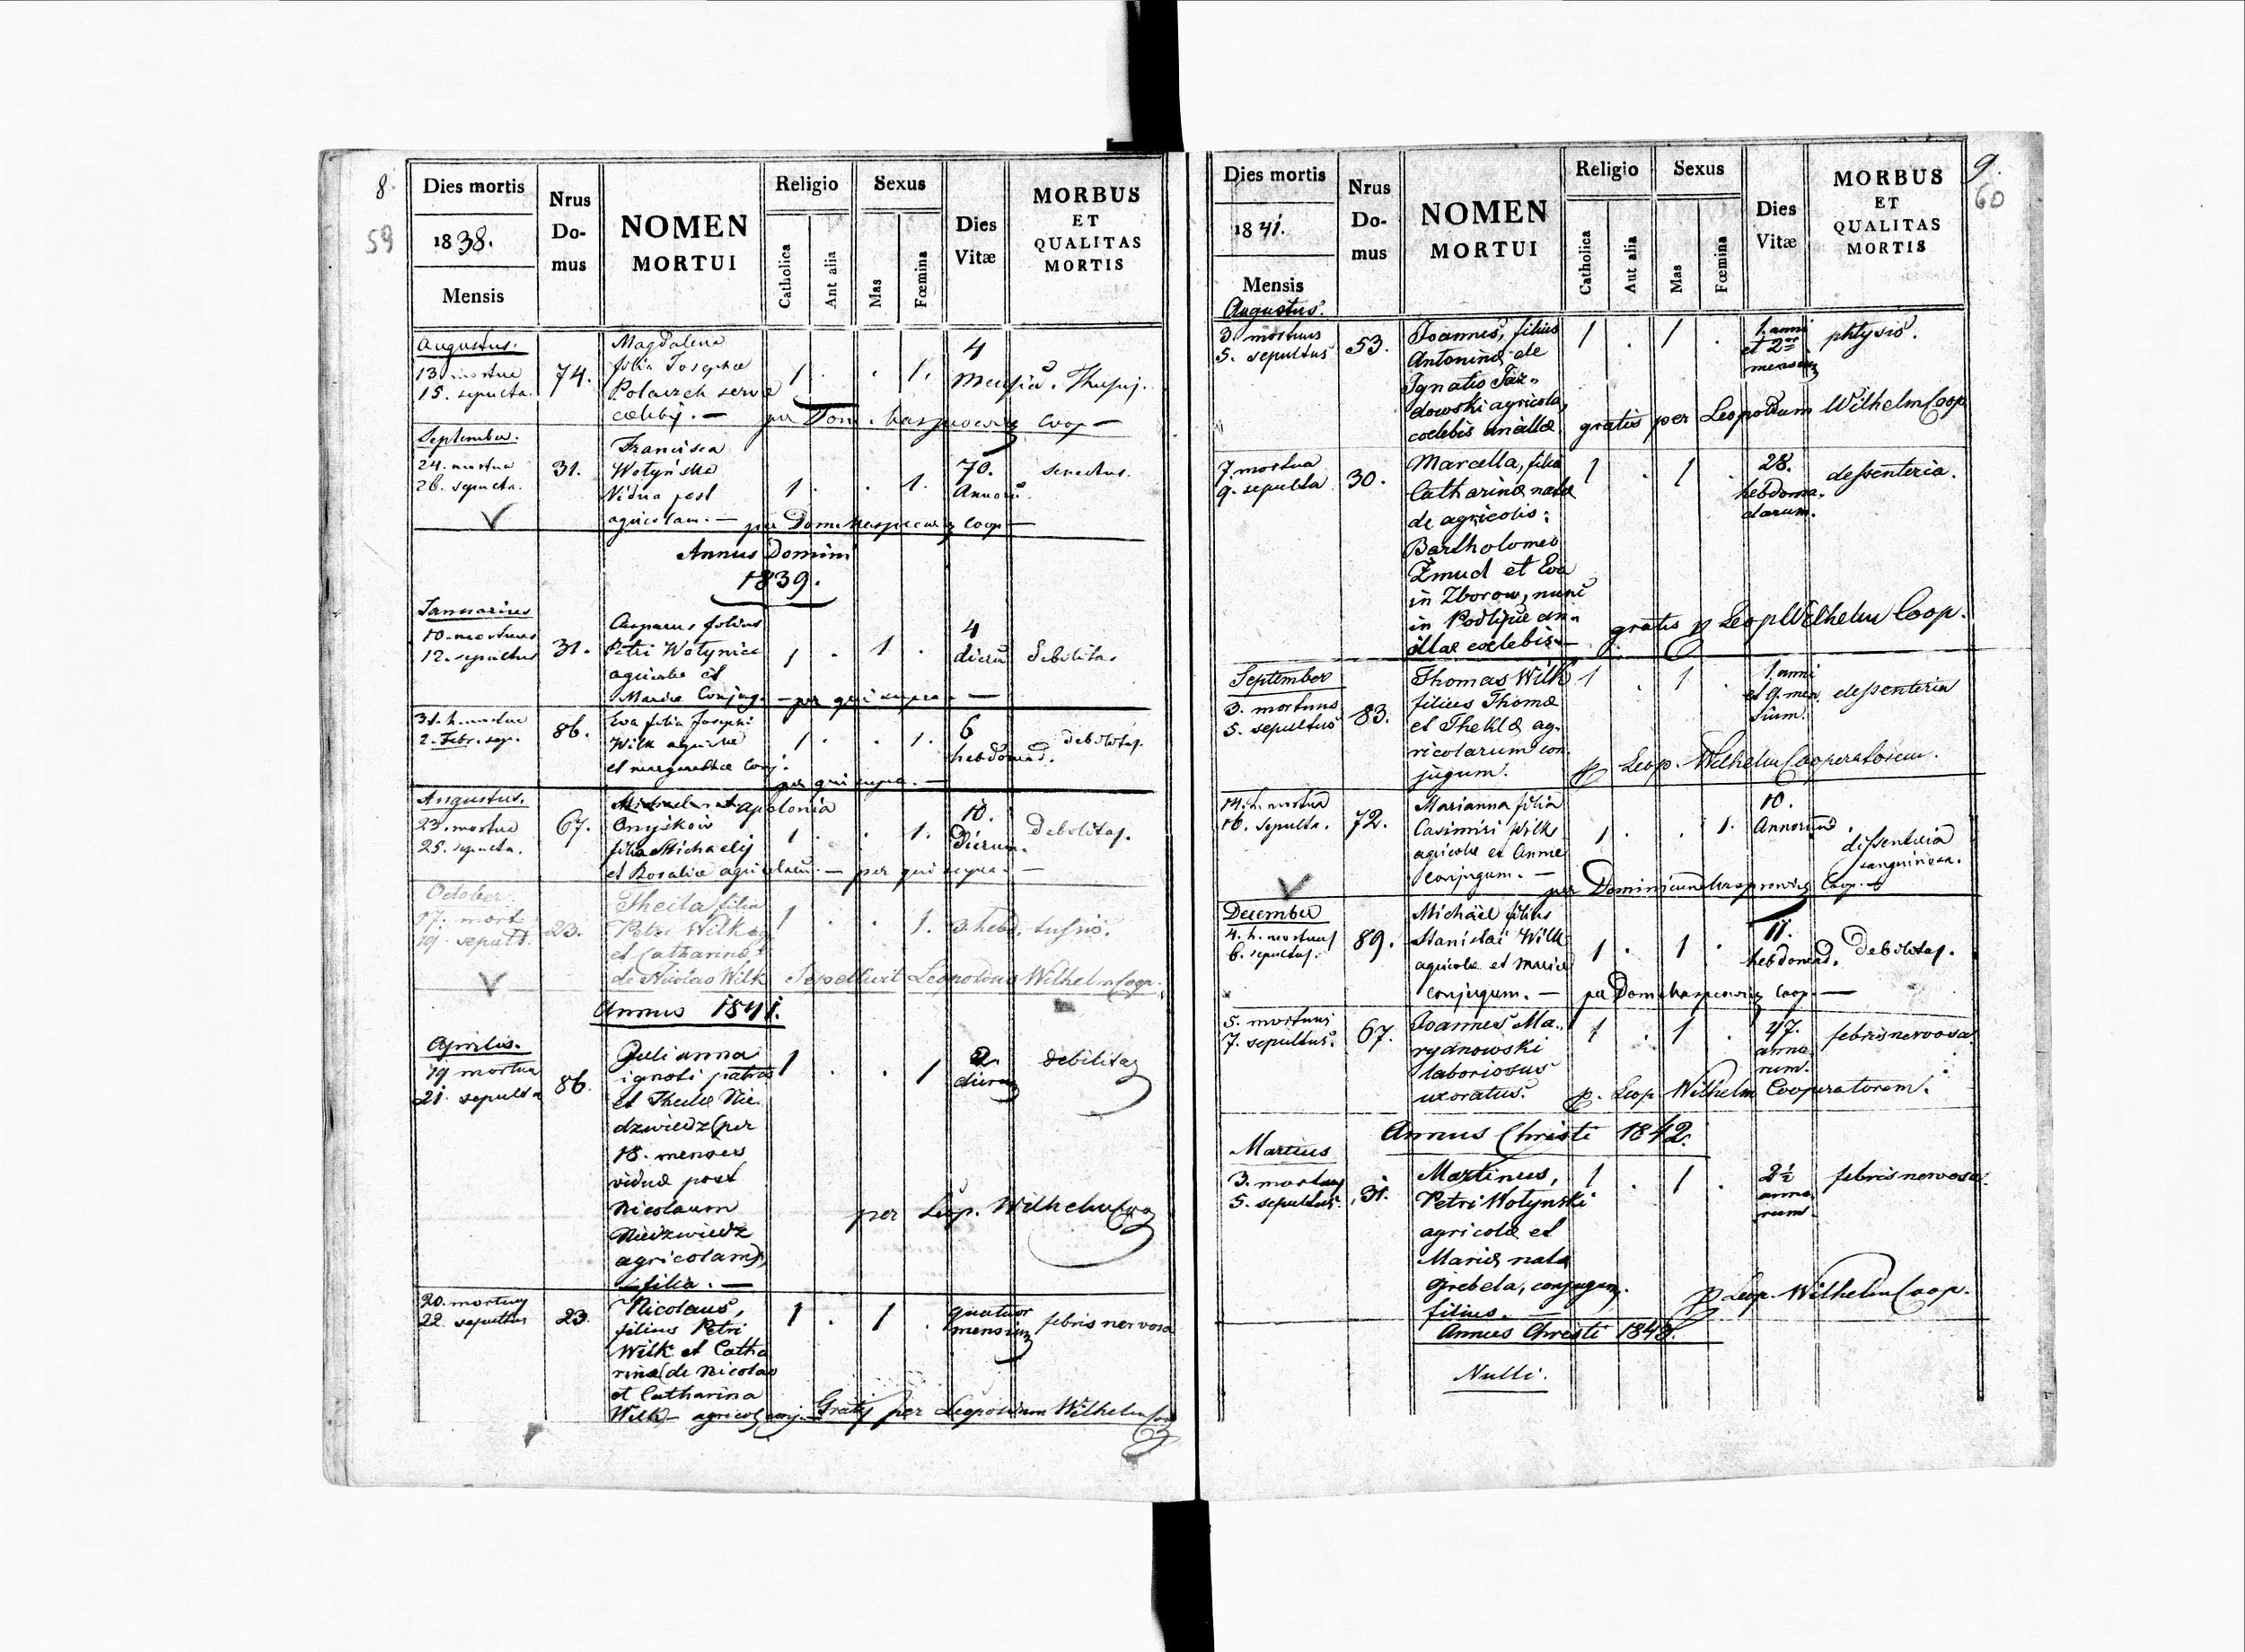 8.
59
Dies mortis
1838.
Mensis
Nrus
Do-
mus
NOMEN
MORTUI
Religio
Catholica
Ant alia
Sexus
Mas
Fœmina
Dies
Vitæ
MORBUS
ET
QUALITAS
MORTIS
Augustus.
13. mortua
15. sepulta.
74.
Magdalena
filia Josephæ
serva
1 . . 1.
4
Mensiu.
per Dom. Coop
September.
24. mortua
26. sepulta.
31.
Francisca
Wotyńska
Vidua post
agricolam.
1 . . 1.
70.
Annoru
senectus.
per Dom. Coop
Annus Domini
1839.
Januarius
10. mortuus
12. sepultus
31.
Casparus filius
Petri Wotynski
agricolæ et
Mariæ Conjug.
1 . 1 .
4
dieru
Debilitas
per qui supra.
31. h. mortua
2. Febr. sep.
86.
Eva filia Josephi
Wilk agricolæ
et Margarethæ Conj.
1 . . 1.
6
hebdomad.
debilitas.
per qui supra.
Augustus.
23. mortua
25. sepulta.
67.
apolonia
Onyśkow
filia Michaelis
et Rosaliæ agricolaru.
1 . . 1.
10.
Dierum.
Debilitas.
per qui supra.
October.
17. mort.
19. sepult.
23.
Thecla filia
Petri Wilk ag
et Catharinæ
de Nicolao Wilk
1 . . 1.
3. hebd.
tussis.
Sepelivit Leopoldus Wilhelm Coop.
Annus 1841.
Aprilis.
19 mortua
21. sepulta
86.
Julianna
ignoti patris
et Theclæ Nie
dzwiedz (per
18. menses
viduæ post
Nicolaum
Niedzwiedz
agricolam),
filia.
1 . . 1
2.
dierum
debilitas
per Leop. Wilhelm Coop
20. mortuus
22 sepultus
23.
Nicolaus,
filius Petri
Wilk et Catha
rinæ (de Nicolao
et Catharina
Wilk) agricol. conj.
1 . 1 .
quatuor
mensium
febris nervosa
Gratis per Leopoldum Wilhelm Coop
9.
60
Dies mortis
1841.
Mensis
Nrus
Do-
mus
NOMEN
MORTUI
Religio
Catholica
Aut alia
Sexus
Mas
Fœmina
Dies
Vitæ
MORBUS
ET
QUALITAS
MORTIS
Augustus.
3. mortuus
5. sepultus
53.
Joannes, filius
Antoninæ de
Ignatio
dowski agricola,
coelebis ancillæ
1 . 1 .
1. anni
et 2
mensium
phtysis.
gratis per Leopoldum Wilhelm Coop
7 mortua
9. sepulta
30.
Marcella, filia
Catharinæ natæ
de agricolis:
Bartholomeo
Żmud et Eva
in Zborow, nunc
in an-
illæ coelebis
1 . 1 .
28.
hebdoma-
darum.
dessenteria.
gratis p Leop Wilhelm Coop.
September
3. mortuus
5. sepultus
83.
Thomas Wilk
filius Thomæ
et Theklæ ag-
ricolarum con
jugum.
1 . 1 .
1. anni
et 9. men
sium.
dessenteria
p Leop. Wilhelm Cooperatorem.
14. h. mortua
16. sepulta.
72.
Marianna filia
Casimiri Wilk
agricolæ et Annæ
conjugum.
1 . . 1.
10.
Annorum
dissenteria
sanguinosa.
per Dominicum Coop.
December
4. h. mortuus
6. sepultus.
89.
Michaël filius
Stanislai Wilk
agricolæ et Mariæ
conjugum.
1 . 1 .
11.
hebdomad.
Debilitas.
per Dom Coop.
5. mortuus
7. sepultus.
67.
Joannes Ma-
rydnowski
laboriosus
uxoratus.
1 . 1 .
47.
anno
rum.
febris nervosa
p. Leop Wilhelm Cooperatorem.
Annus Christi 1842.
Martius
3. mortuus
5. sepultus.
31.
Martinus,
Petri Wotynski
agricolæ et
Mariæ natæ
Grebela, conjugum.
filius.
1 . 1 .
2½
anno
rum
febris nervosa.
p Leop. Wilhelm Coop.
Annus Christi 1843.
Nulli.